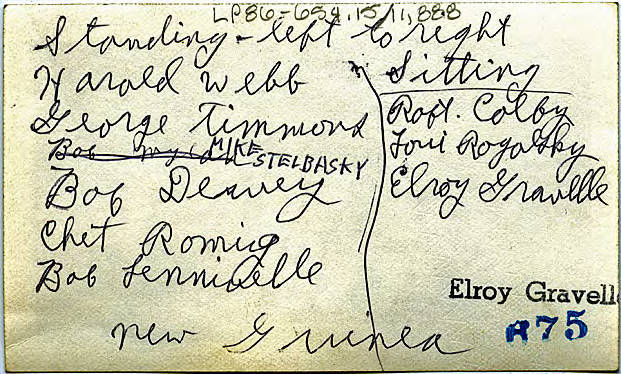 LP86-654.15/1,888
Standing - left to right
Harold Webb
George Timmond
MIKE STELBASKY
Bob Deavey
Chet Romig
Bob
New Guinea
Sitting
Robt. Colby
Rogalsky
Elroy Gravelle
Elroy Gravell
A75